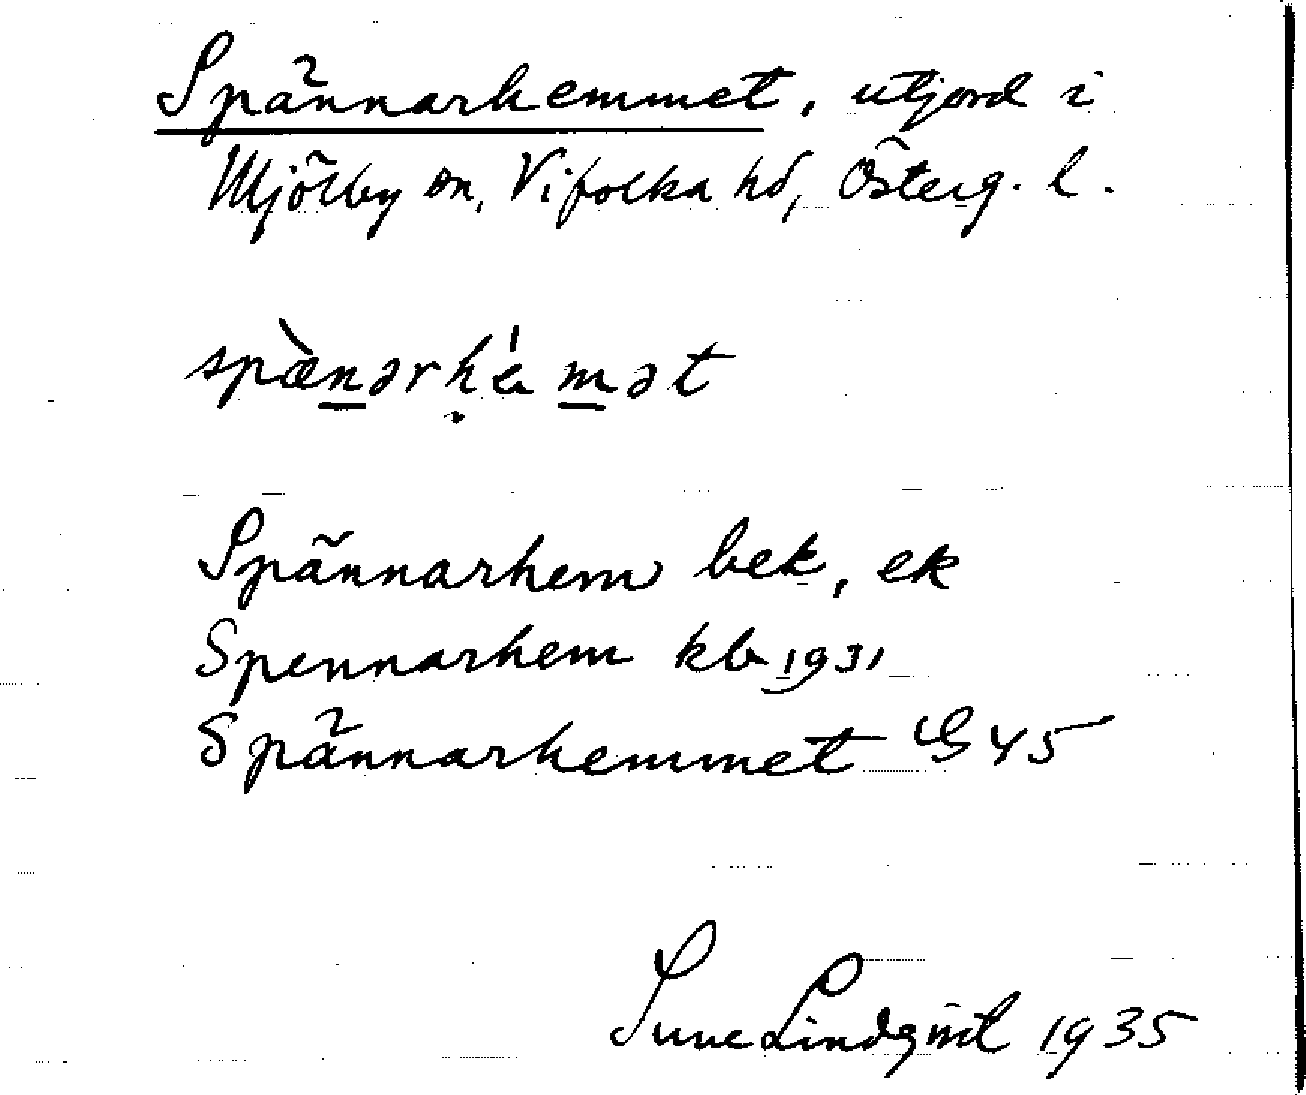 Spännarhemmet, utjord i
Mjölby sn, Vifolka hd, Österg. l.
spæ̀nərhémət
Spännarhem bek, ek
Spennarhem kb 1931
Spännarhemmet GS 45
Sune Lindqvist 1935